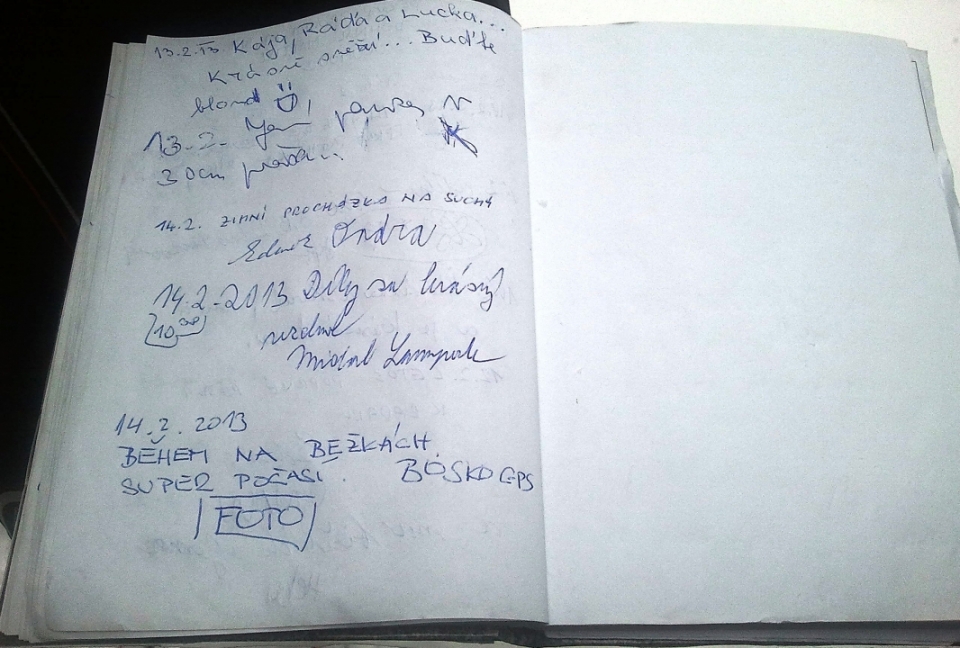 13.2.13 Kája, Ráďa a Lucka...
Krásně sněží... Buďte
blond
13.2. 
30cm
14.2. ZIMNÍ PROCHÁZKA NA SUCHÝ
Zdeněk Ondra
14.2.2013 Díky za krásný
10
Michal
14.2.2013
BĚHEM NA BĚŽKÁCH.
SUPER POČASÍ. BOSKOGPS
FOTO